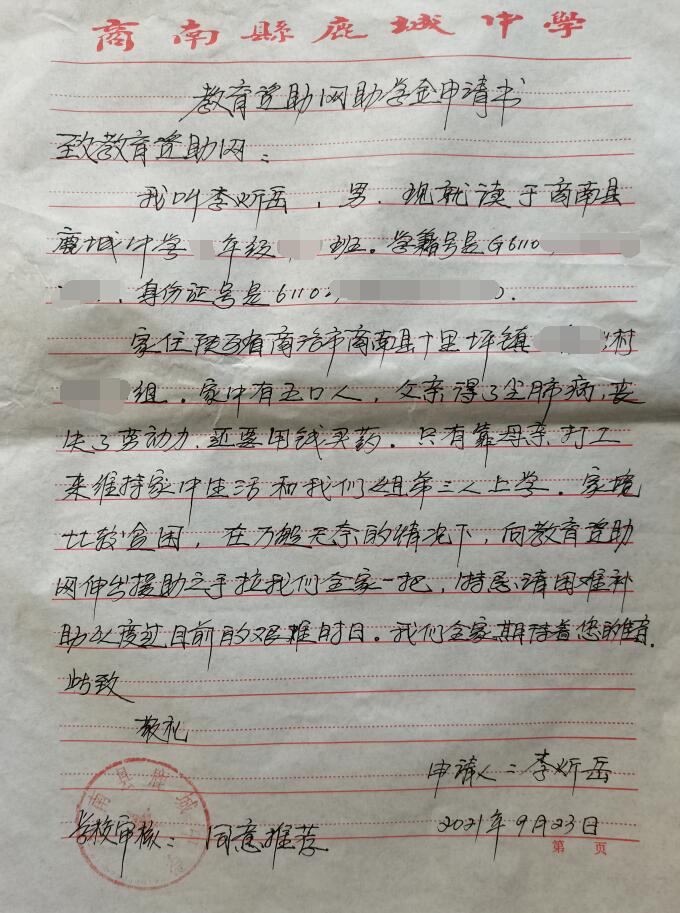 商南縣鹿城中學
教育资助网助学金申请书
致教育资助网：
我叫李炘岳，男，现就读于商南县
鹿城中学 年级 班。学籍号是G6110
，身份证号是6110
家住陕西省商洛市商南县十里坪镇 村
组。家中有五口人，父亲得了尘肺病，丧
失了劳动力，还要用钱买药。只有靠母亲打工
来维持家中生活和我们姐弟三人上学。家境
比较贫困，在万般无奈的情况下，向教育资助
网伸出援助之手拉我们全家一把，特恳请困难补
助以度过目前的艰难时日。我们全家期待着您的
此致
敬礼
申请人：李炘岳
学校审核：同意推荐
2021年9月23日
第 页